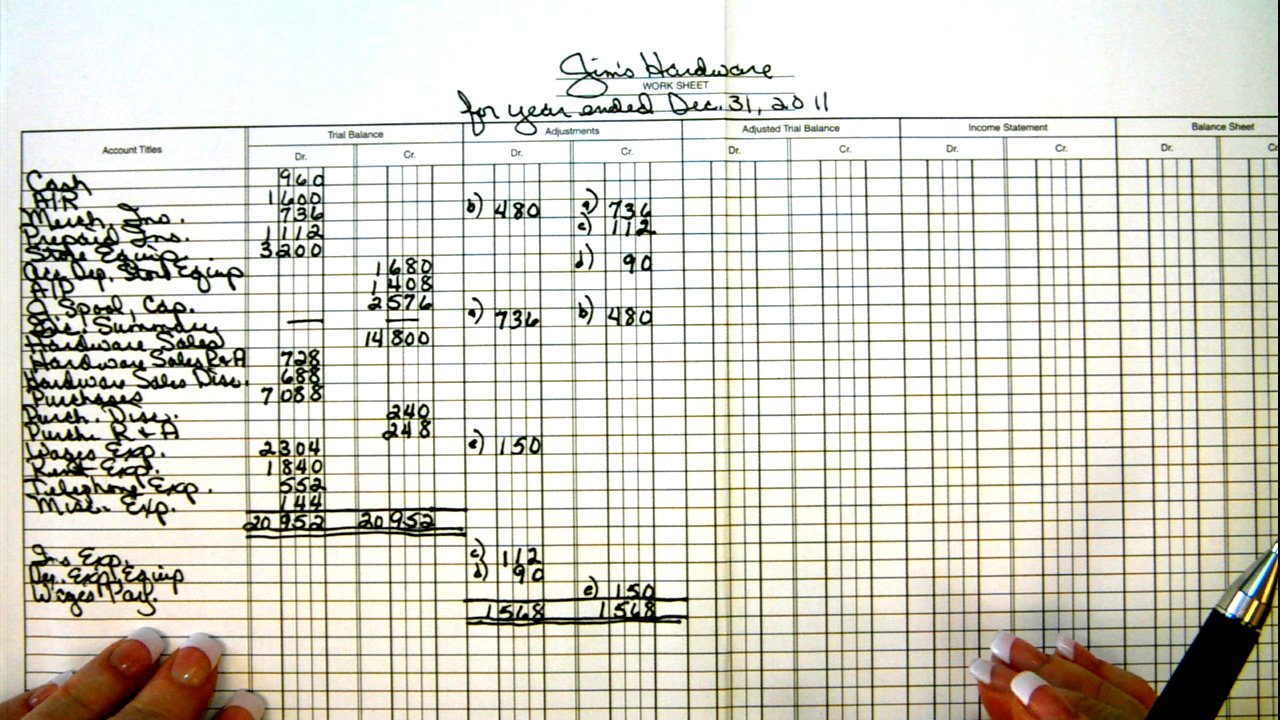 Jim's Hardware
WORK SHEET
for year ended Dec. 31, 2011
Account Titles Trial Balance Adjustments Adjusted Trial Balance Income Statement Balance Sheet
Dr. Cr. Dr. Cr. Dr. Cr. Dr. Cr. Dr.
Cash 960
A/R 1600
Merch. Ins. 736 b) 480 a) 736
Prepaid Ins. 1112 c) 112
Store Equip. 3200
Acc. Dep. Store Equip 1680 d) 90
A/P 1408
J. Spool, Cap. 2576
Inc. Summary — — a) 736 b) 480
Hardware Sales 14800
Hardware Sales R&A 728
Hardware Sales Disc. 688
Purchases 7088
Purch. Disc. 240
Purch. R & A 248
Wages Exp. 2304 e) 150
Rent Exp. 1840
Telephone Exp. 552
Misc. Exp. 144
20952 20952
Ins Exp. c) 112
Dep. Exp. Equip d) 90
Wages Pay. e) 150
1568 1568